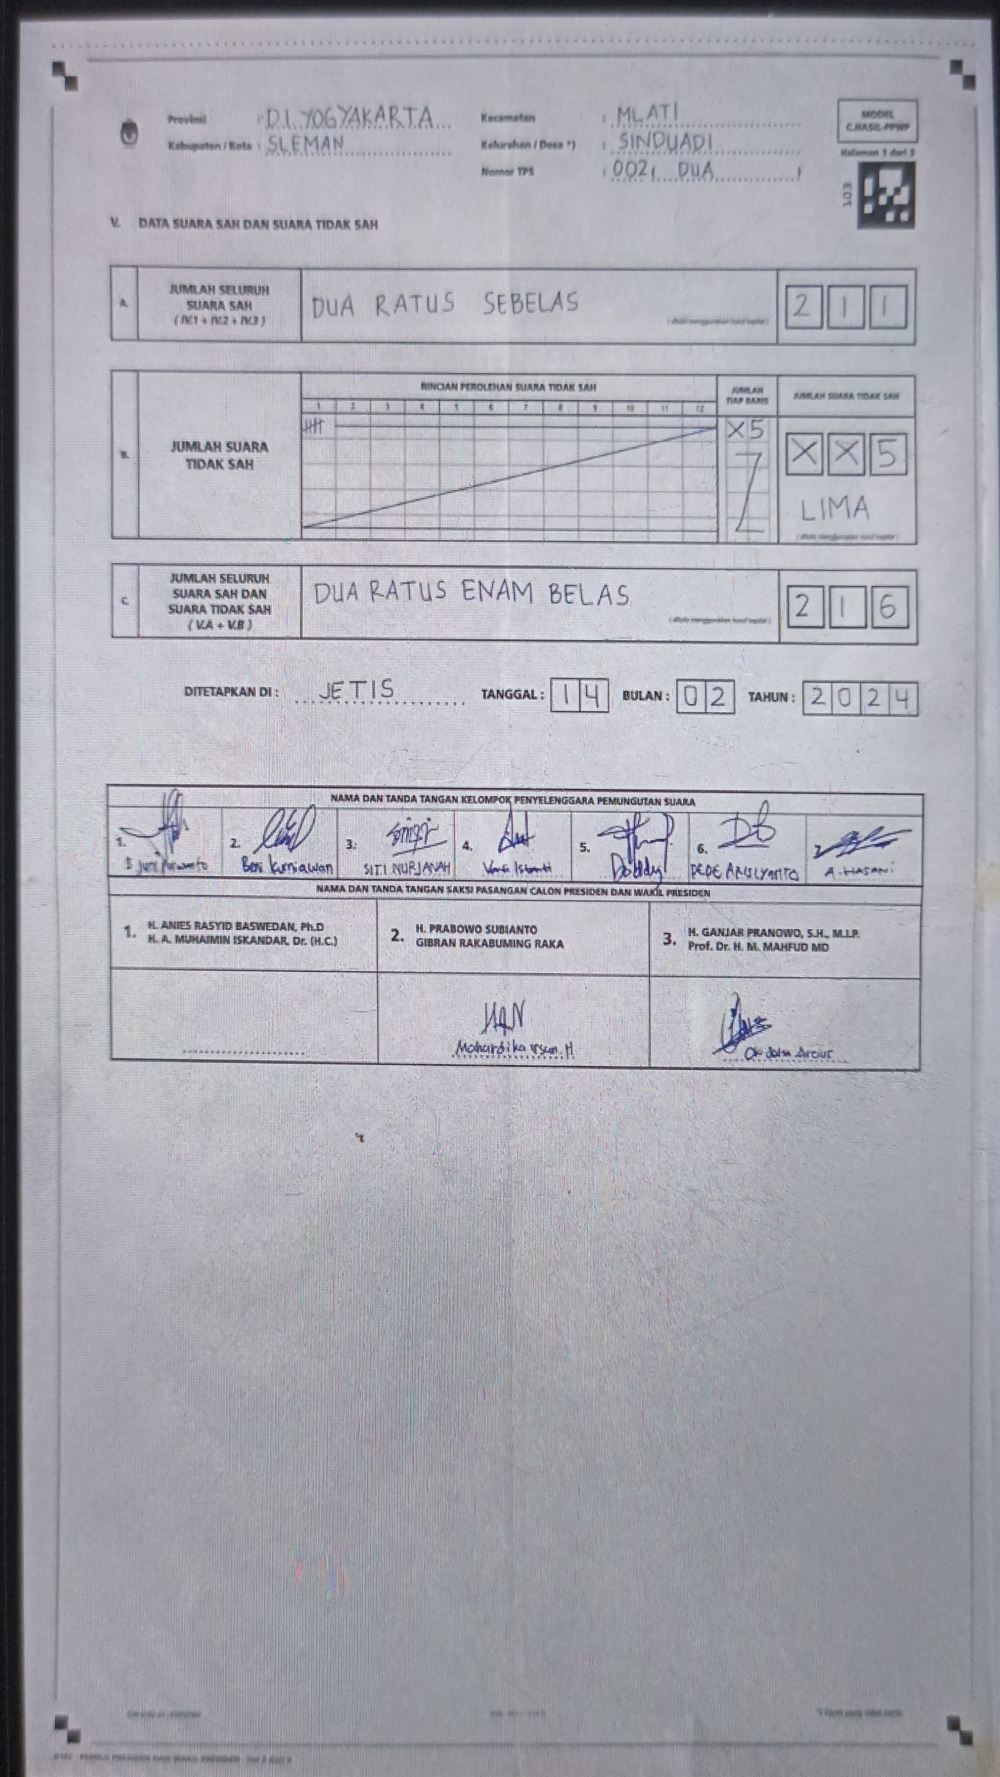 Provinsi : D.I. YOGYAKARTA
Kabupaten / Kota : SLEMAN
Kecamatan : MLATI
Kelurahan / Desa *) : SINDUADI
Nomor TPS : 002 ( DUA )
MODEL
C.HASIL-PPWP
Halaman 3 dari 3
103
V. DATA SUARA SAH DAN SUARA TIDAK SAH
A. JUMLAH SELURUH SUARA SAH ( IV.1 + IV.2 + IV.3 )
DUA RATUS SEBELAS
( ditulis menggunakan huruf kapital )
2 1 1
B. JUMLAH SUARA TIDAK SAH
RINCIAN PEROLEHAN SUARA TIDAK SAH
JUMLAH TIAP BARIS
JUMLAH SUARA TIDAK SAH
1 2 3 4 5 6 7 8 9 10 11 12
X5
X X 5
LIMA
( ditulis menggunakan huruf kapital )
C. JUMLAH SELURUH SUARA SAH DAN SUARA TIDAK SAH ( V.A + V.B )
DUA RATUS ENAM BELAS
( ditulis menggunakan huruf kapital )
2 1 6
DITETAPKAN DI : JETIS TANGGAL : 14 BULAN : 02 TAHUN : 2024
NAMA DAN TANDA TANGAN KELOMPOK PENYELENGGARA PEMUNGUTAN SUARA
1. 2. 3. 4. 5. 6. 7.
Beni Kurniawan SITI NURJANAH Doddy A. HASANI
NAMA DAN TANDA TANGAN SAKSI PASANGAN CALON PRESIDEN DAN WAKIL PRESIDEN
1. H. ANIES RASYID BASWEDAN, Ph.D
H. A. MUHAIMIN ISKANDAR, Dr. (H.C.)
2. H. PRABOWO SUBIANTO
GIBRAN RAKABUMING RAKA
3. H. GANJAR PRANOWO, S.H., M.I.P.
Prof. Dr. H. M. MAHFUD MD